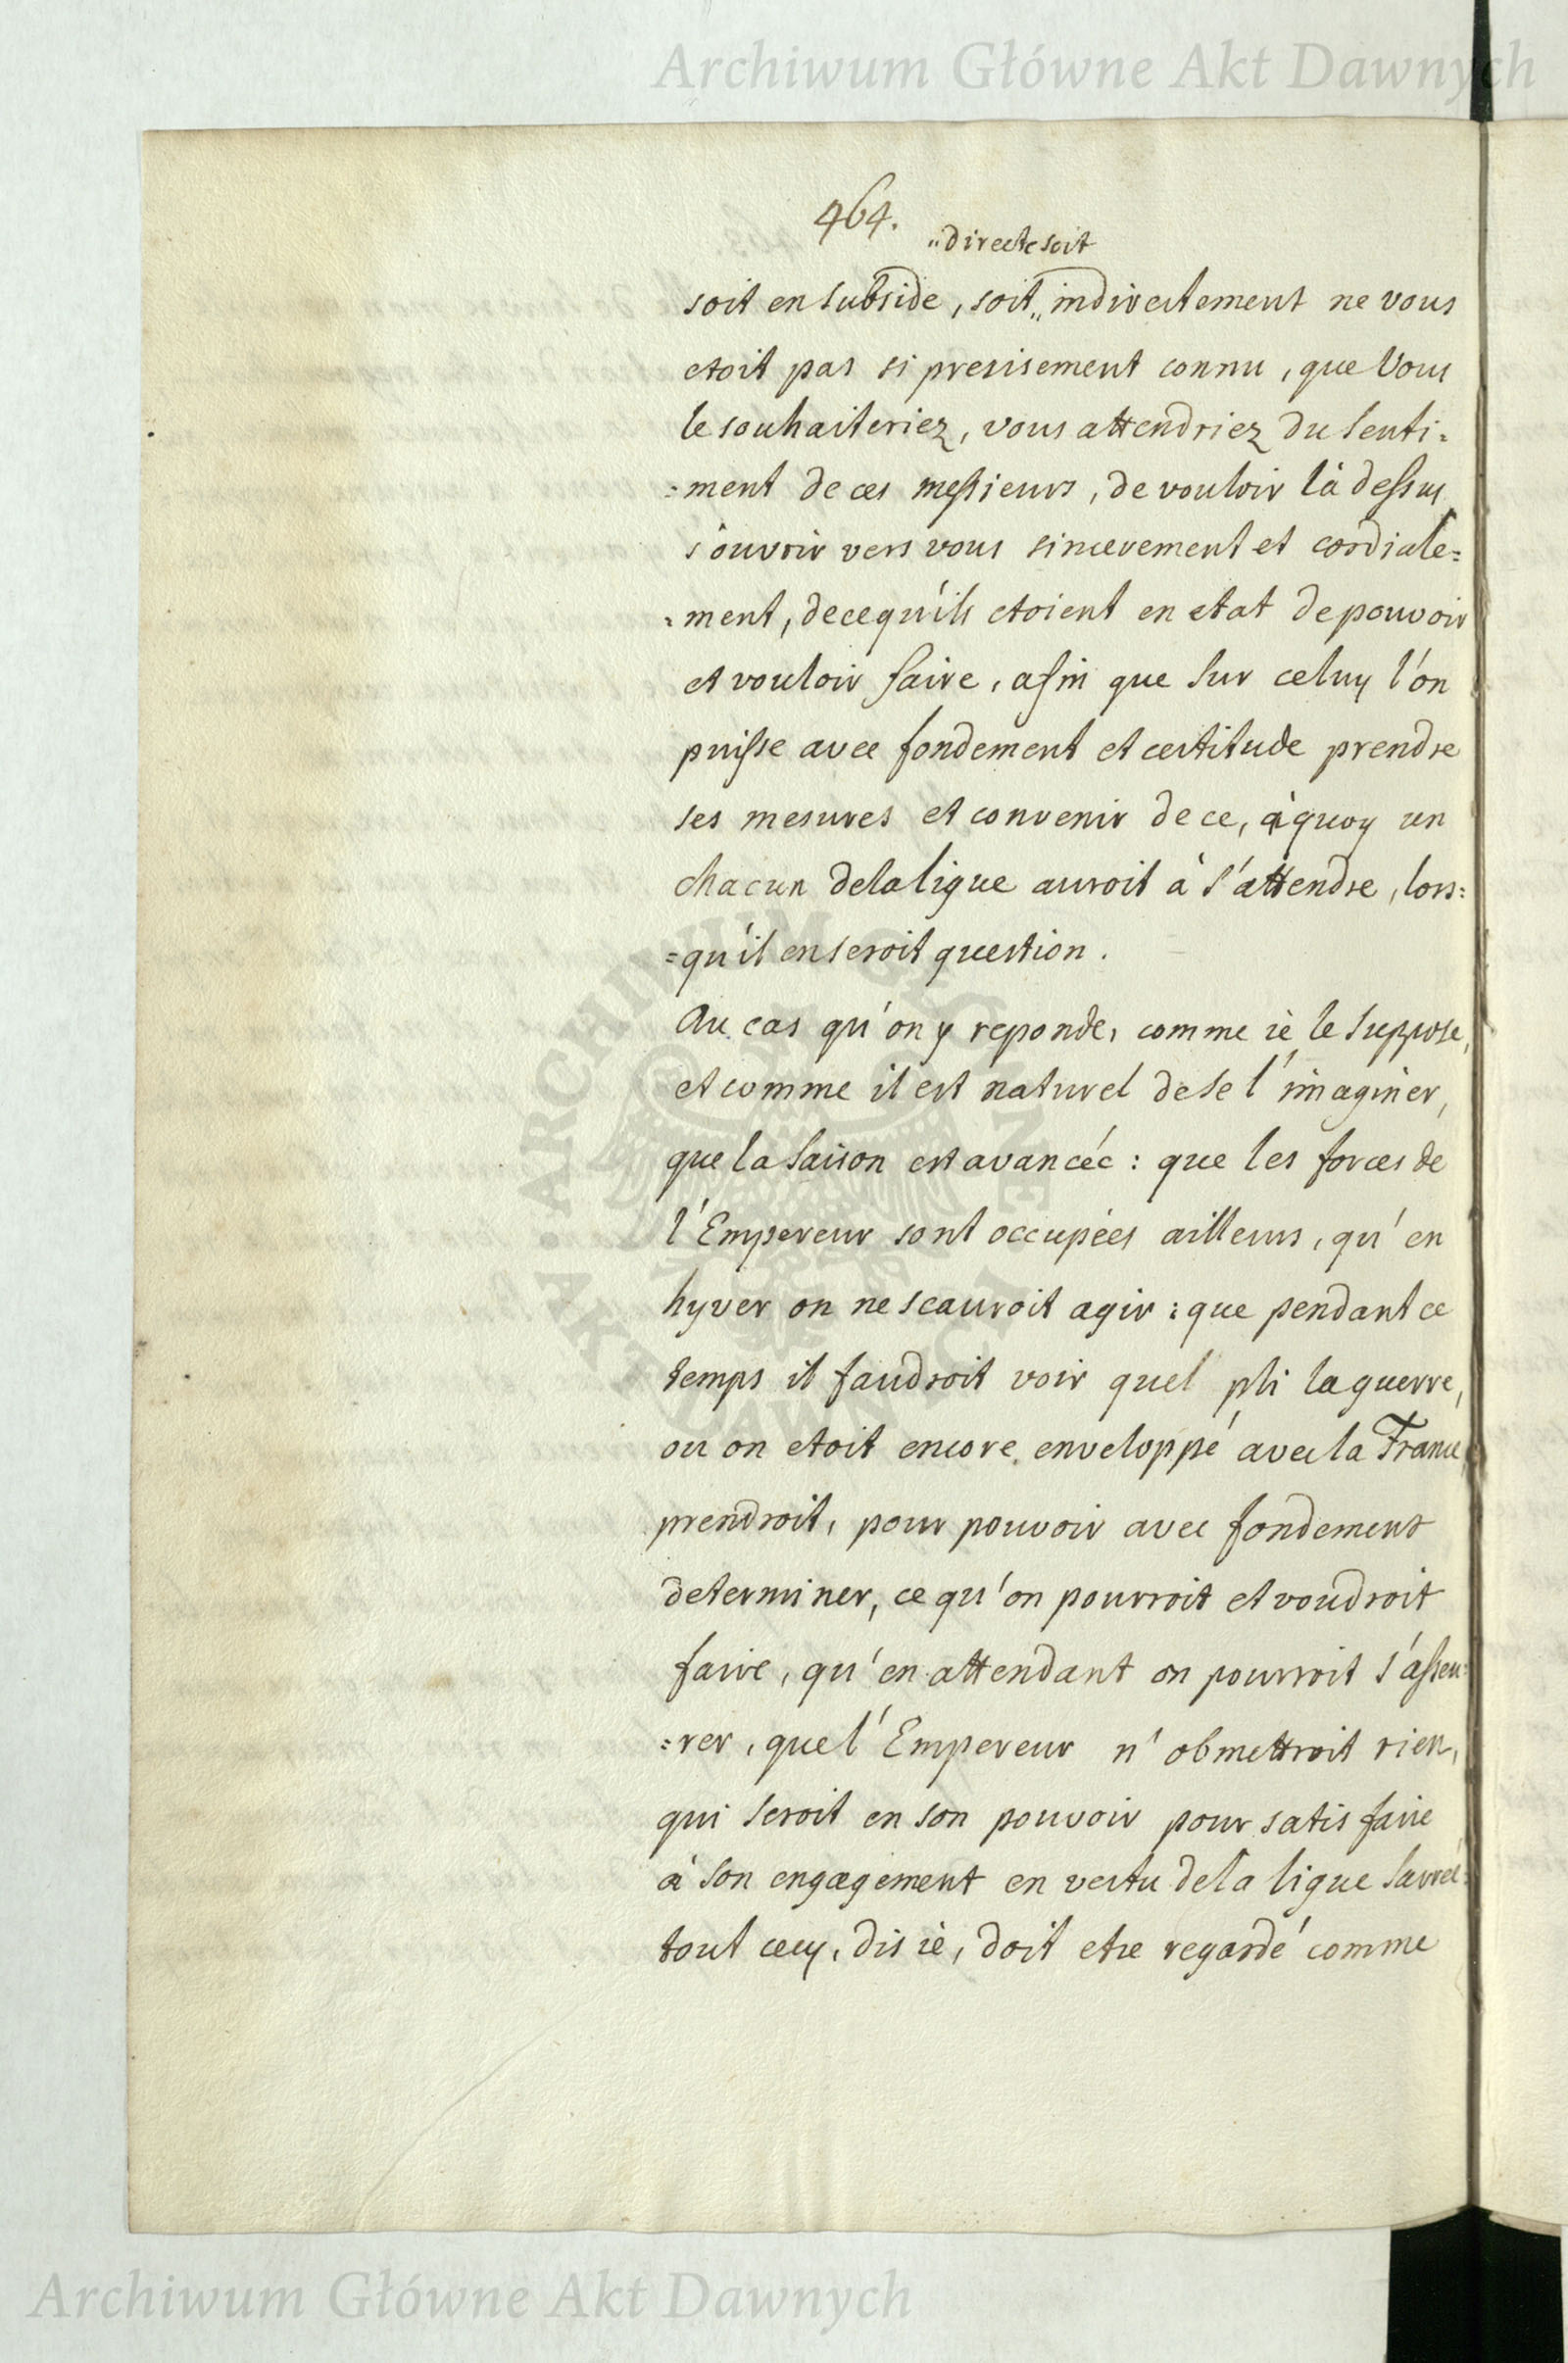 Archiwum Główne Akt Dawnych
464.
"directe soit
soit en subside, soit „ indirectement ne vous
etoit pas si presisement connu, que Vous
le souhaiteriez, vous attendriez du senti=
=ment de ces messieurs, de vouloir là dessus
s'ouvrir vers vous sincerement et cordiale=
=ment, de ce qu'ils etoient en etat de pouvoir
et vouloir faire, afin que sur celuy l'on
puisse avec fondement et certitude prendre
ses mesures et convenir de ce, à quoy un
chacun de la ligue auroit à s'attendre, lors=
=qu'il en seroit question.
Au cas qu'on y reponde, comme iè le suppose,
et comme il est naturel de se l'imaginer,
que la saison est avancée: que les forces de
l'Empereur sont occupées ailleurs, qu'en
hyver on ne scauroit agir: que pendant ce
temps il faudroit voir quel pli la guerre,
ou on etoit encore enveloppé avec la France,
prendroit, pour pouvoir avec fondement
determiner, ce qu'on pourroit et voudroit
faire, qu'en attendant on pourroit s'asseu=
=rer, que l'Empereur n'obmettroit rien,
qui seroit en son pouvoir pour satisfaire
à son engagement en vertu de la ligue sacrée:
tout cecy, dis iè, doit etre regardé comme
ARCHIWUM GŁÓWNE AKT DAWNYCH
Archiwum Główne Akt Dawnych